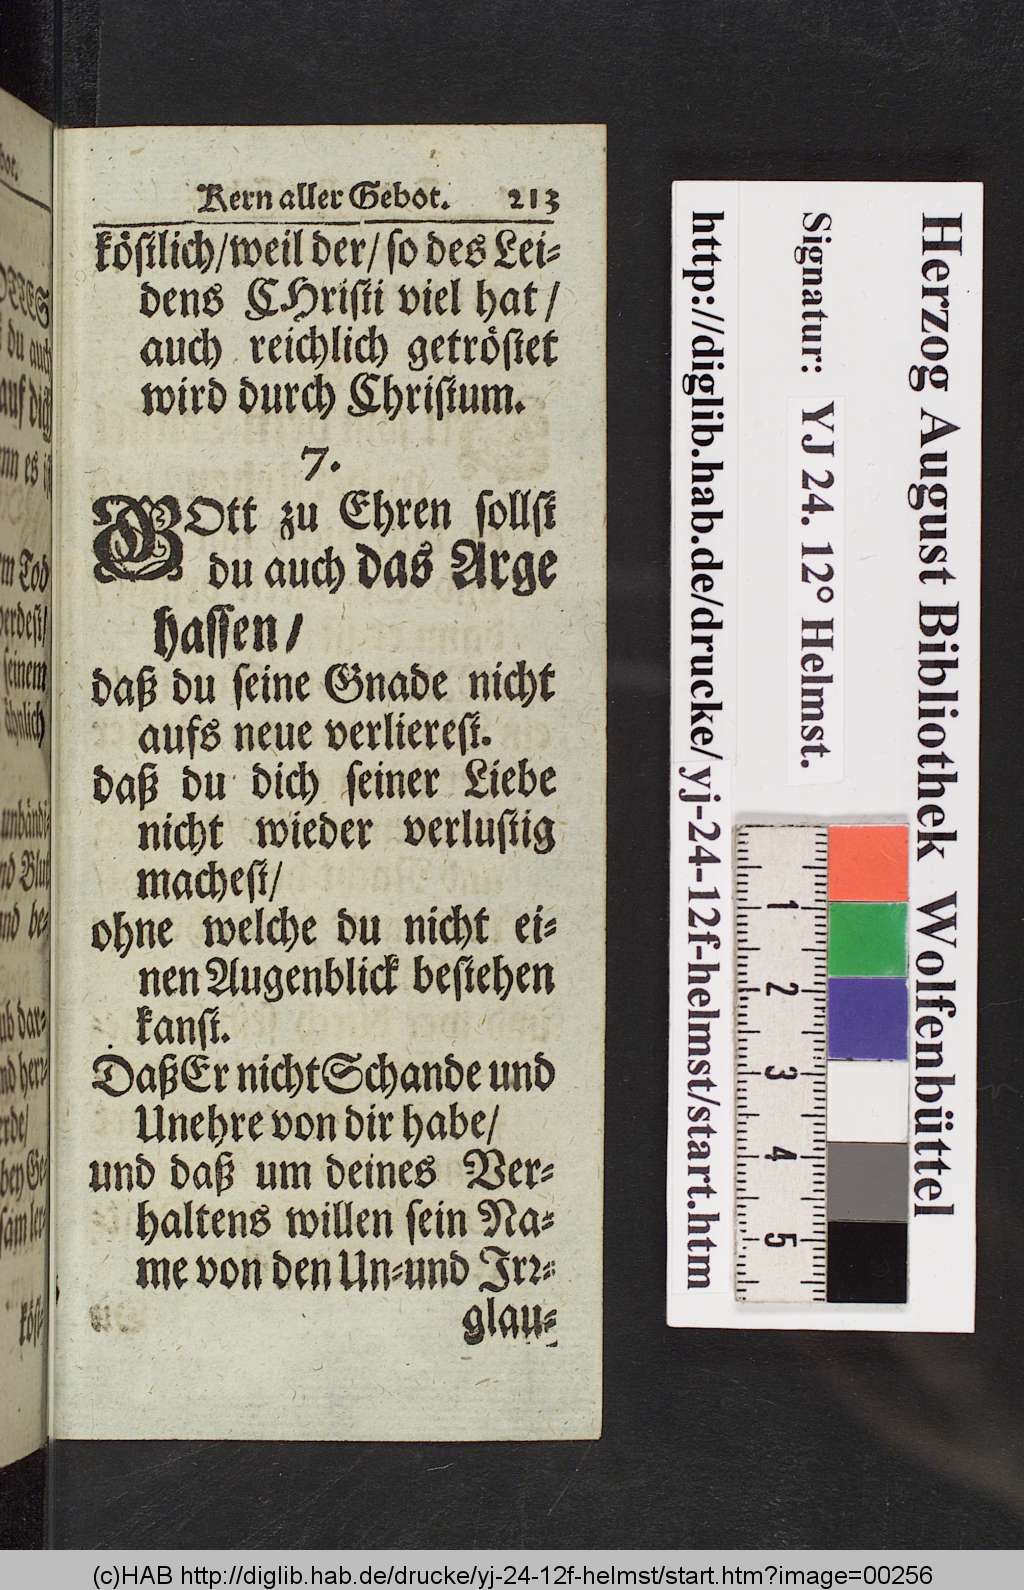 Kern aller Gebot. 213
köstlich/ weil der/ so des Lei⸗
dens CHristi viel hat/
auch reichlich getröstet
wird durch Christum.
7.
GOtt zu Ehren sollst
du auch das Arge
hassen/
daß du seine Gnade nicht
aufs neue verlierest.
daß du dich seiner Liebe
nicht wieder verlustig
machest/
ohne welche du nicht ei⸗
nen Augenblick bestehen
kanst.
Daß Er nicht Schande und
Unehre von dir habe/
und daß um deines Ver⸗
haltens willen sein Na⸗
me von den Un⸗und Irꝛ⸗
glau⸗
du auch
auf dich
es
Tod
seinem
nd Blut
be⸗
dar⸗
bey Ge⸗
kös⸗
Herzog August Bibliothek Wolfenbüttel
Signatur: YJ 24. 12° Helmst.
http://diglib.hab.de/drucke/yj-24-12f-helmst/start.htm
1
2
3
4
5
(c)HAB http://diglib.hab.de/drucke/yj-24-12f-helmst/start.htm?image=00256